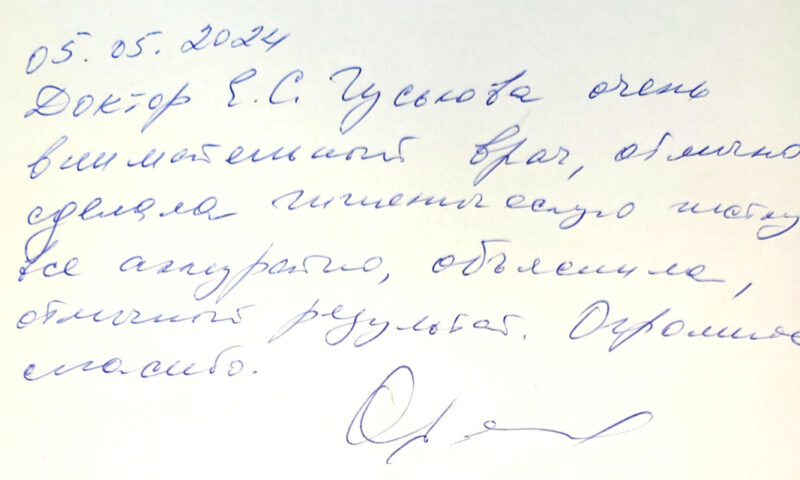 05.05.2024
Доктор Е.С. Гуськова очень
внимательный врач, отлично
сделала гигиеническую чистку
все аккуратно, объяснила,
отличный результат. Огромное
спасибо.